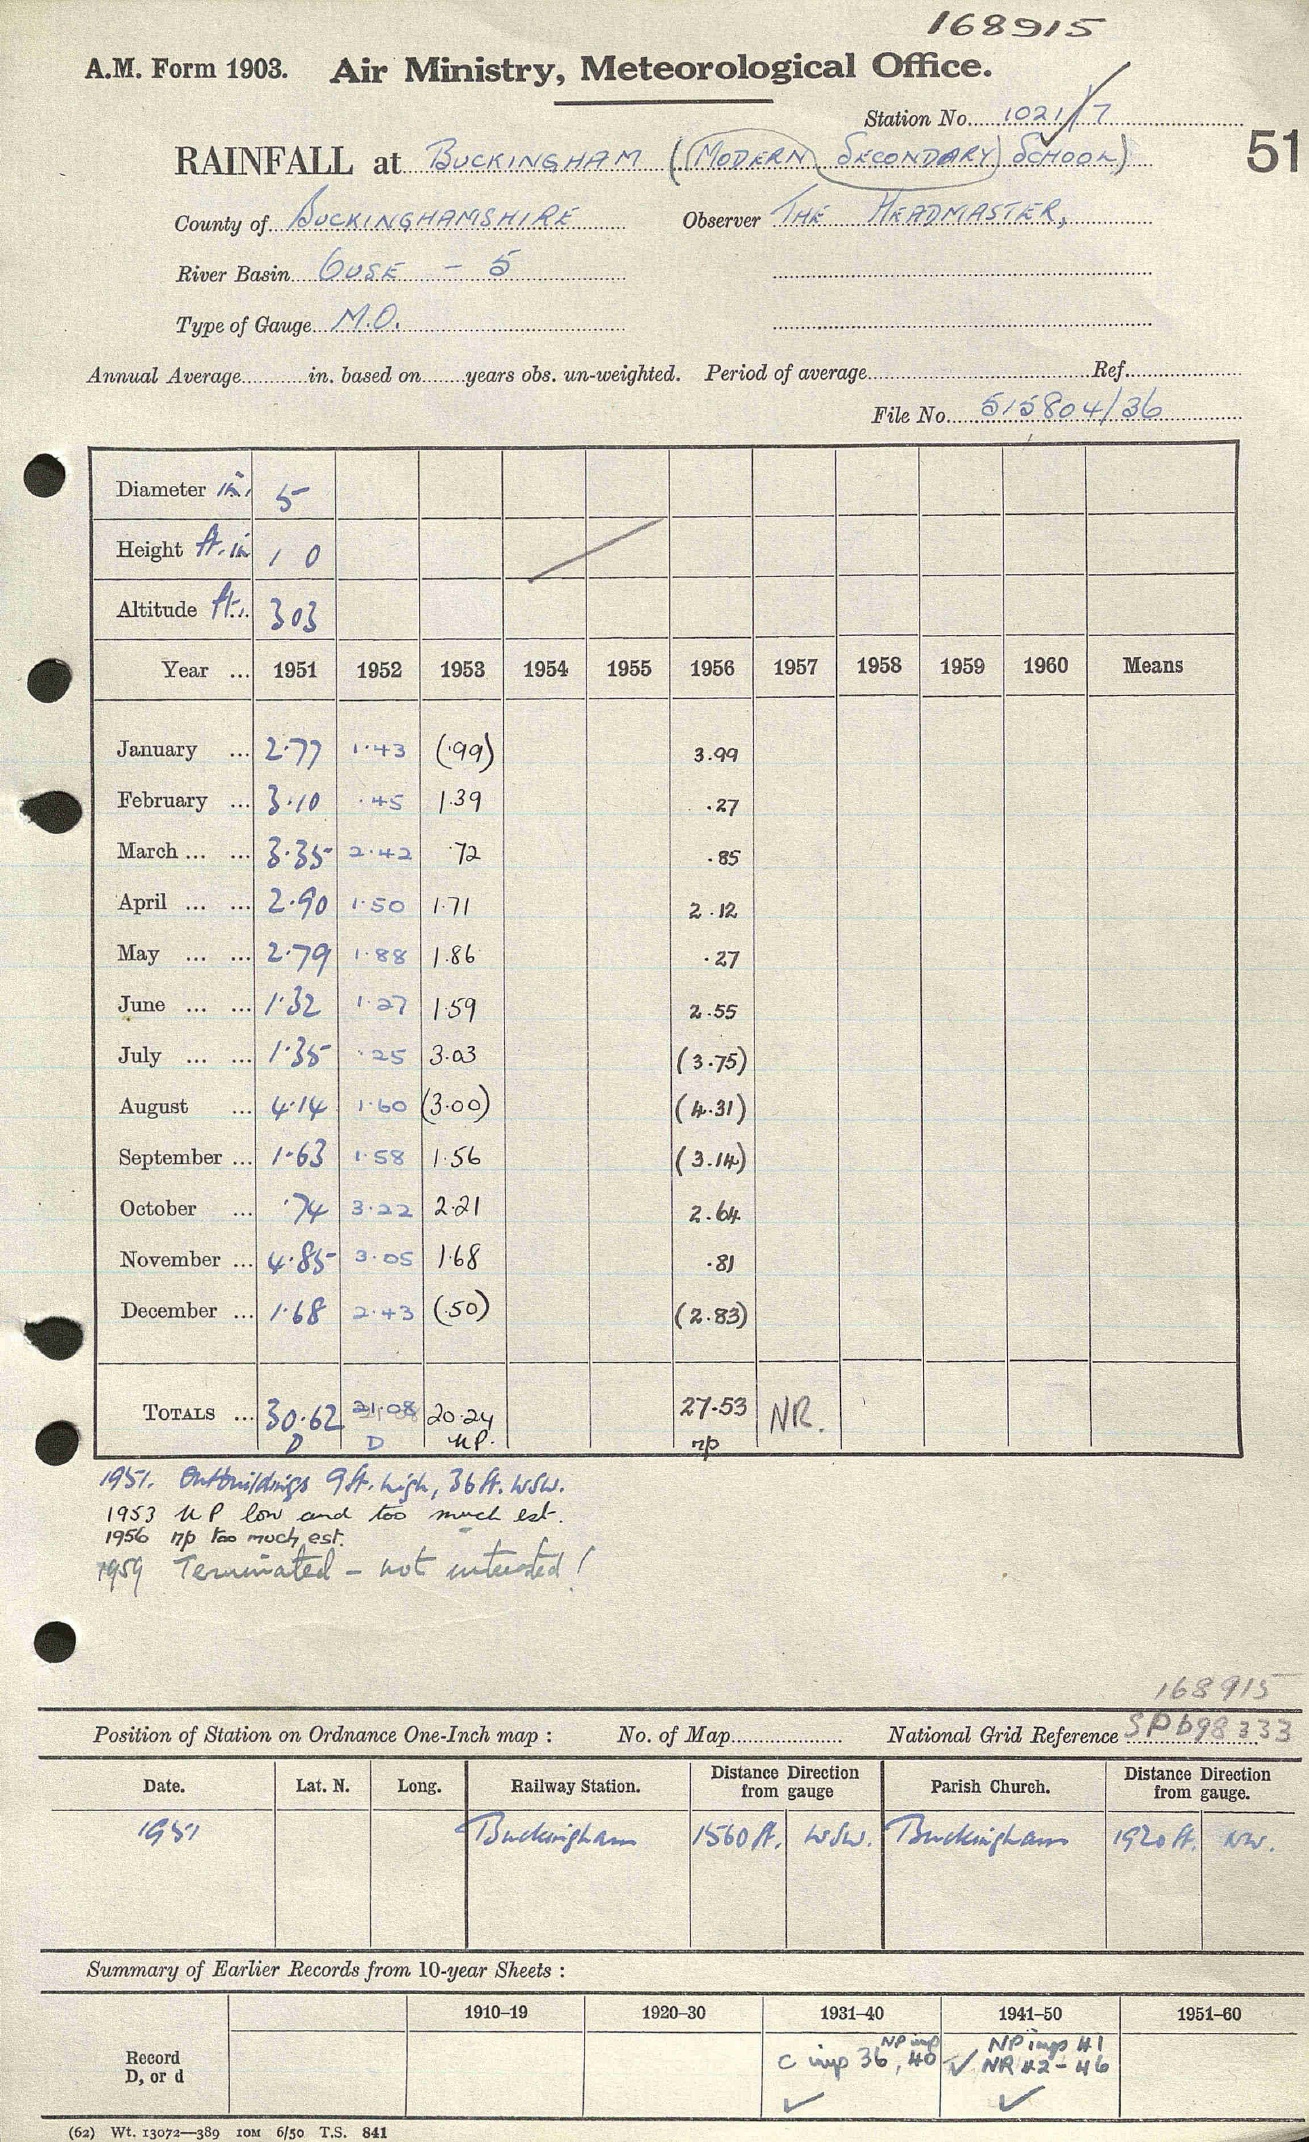 168915
A.M. Form 1903. Air Ministry, Meteorological Office.
Station No. 1021/7
RAINFALL at BUCKINGHAM (MODERN SECONDARY SCHOOL) 51
County of BUCKINGHAMSHIRE Observer THE HEADMASTER,
River Basin OUSE - 5
Type of Gauge M.O.
Annual Average in. based on years obs. un-weighted. Period of average Ref.
File No. 515804/36
Diameter in. 5
Height ft. in 1 0
Altitude ft. 303
Year ... 1951 1952 1953 1954 1955 1956 1957 1958 1959 1960 Means
January ... 2.77 1.43 (.99) 3.99
February ... 3.10 .45 1.39 .27
March ... ... 3.35 2.42 .72 .85
April ... ... 2.90 1.50 1.71 2.12
May ... ... 2.79 1.88 1.86 .27
June ... ... 1.32 1.27 1.59 2.55
July ... ... 1.35 .25 3.03 (3.75)
August ... 4.14 1.60 (3.00) (4.31)
September ... 1.63 1.58 1.56 (3.14)
October ... .74 3.22 2.21 2.64
November ... 4.85 3.05 1.68 .81
December ... 1.68 2.43 (.50) (2.83)
TOTALS ... 30.62 21.08 20.24 27.53 NR.
D D NP. np
1951. Outbuildings 9ft. high, 36ft. WSW.
1953 NP low and too much est.
1956 np too much est.
1959 Terminated - not interested!
168915
Position of Station on Ordnance One-Inch map : No. of Map National Grid Reference SP698333
Date. Lat. N. Long. Railway Station. Distance Direction from gauge Parish Church. Distance Direction from gauge.
1951 Buckingham 1560ft. WSW. Buckingham 1920ft. NW.
Summary of Earlier Records from 10-year Sheets :
1910–19 1920–30 1931–40 1941–50 1951–60
NP imp NP imps 41
Record D, or d C imp 36, 40 ✓ NR 42-46
✓ ✓
(62) Wt. 13072—389 10M 6/50 T.S. 841